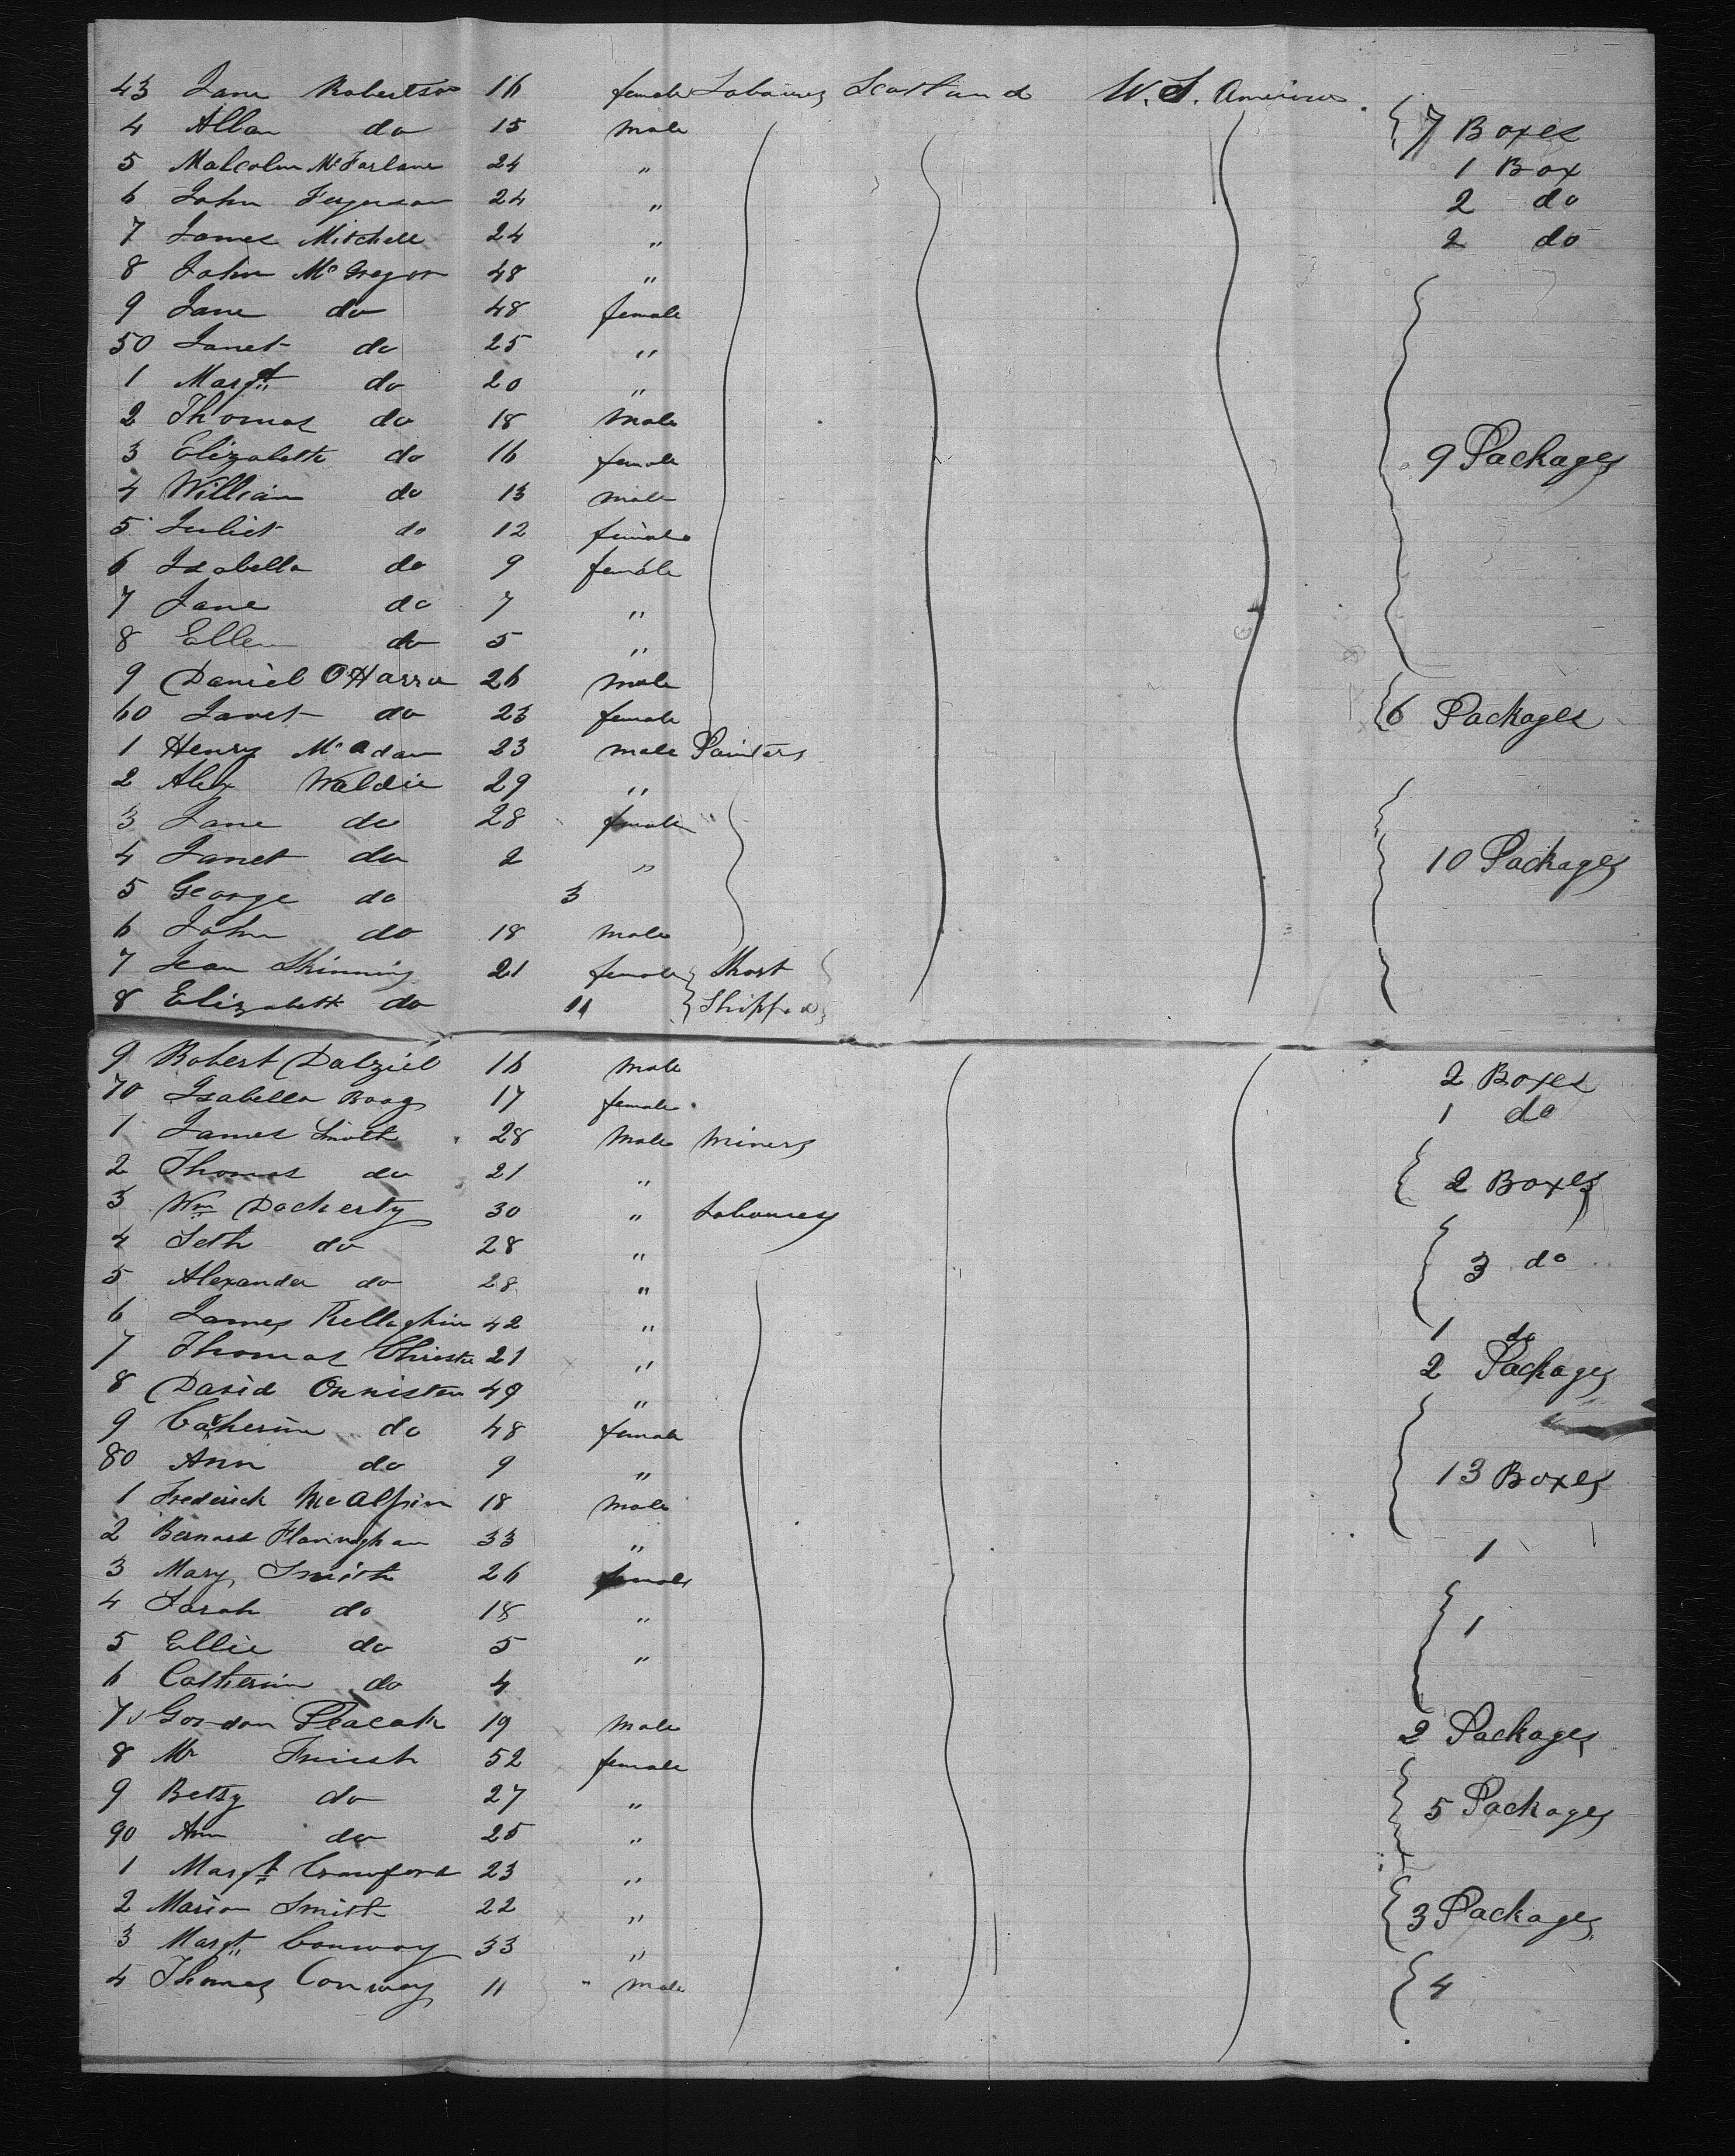 43 Jane Robertson 16 female Labourers Scotland U.S. America
4 Allan do 15 male 7 Boxes
5 Malcolm McFarlane 24 " 1 Box
6 John Ferguson 24 " 2 do
7 James Mitchell 24 " 2 do
8 John McGregor 48 "
9 Jane do 48 female
50 Janet do 25 "
1 Margt do 20 "
2 Thomas do 18 male
3 Elizabeth do 16 female 9 Packages
4 William do 13 male
5 Juliet do 12 female
6 Isabella do 9 female
7 Jane do 7 "
8 Ellen do 5 "
9 Daniel O'Harra 26 male
60 Janet do 23 female 6 Packages
1 Henry McAdam 23 male Painters
2 Alex Waldie 29 "
3 Jane do 28 female "
4 Janet do 2 " 10 Packages
5 George do 3
6 John do 18 male
7 Jean Skinning 21 female Short
8 Elizabeth do 11 Shipped
9 Robert Dalziel 16 male 2 Boxes
70 Isabella Boag 17 female 1 do
1 James Smith 28 male Miners
2 Thomas do 21 " 2 Boxes
3 Wm Docherty 30 " Labourers
4 Seth do 28 " 3 do
5 Alexander do 28 "
6 James 42 " 1 do
7 Thomas Christie 21 " 2 Packages
8 David Onnisten 49 "
9 Catherine do 48 female
80 Ann do 9 " 13 Boxes
1 Frederick McAlpin 18 male
2 Bernard Flannighan 33 " 1
3 Mary Smith 26 female
4 Sarah do 18 " 1
5 Ellie do 5 "
6 Catherine do 4
7 Gordon Peacok 19 male 2 Packages
8 52 female
9 Betsy do 27 " 5 Packages
90 Ann do 25 "
1 Margt Crawford 23 "
2 Marion Smith 22 " 3 Packages
3 Margt Conway 33 "
4 Thomas Conway 11 " male 4